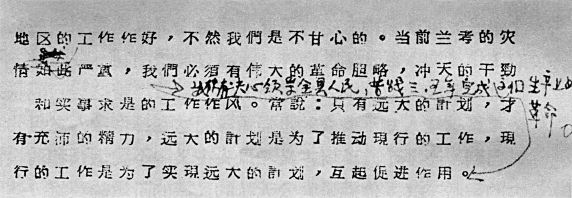 地区的工作作好，不然我們是不甘心的。当前兰考的灾
情如此严重，我們必須有伟大的革命胆略，冲天的干勁
决心领导全县人民，苦战三、五年完成
革命
和实事求是的工作作风。常說：只有远大的計划，才
有充沛的精力，远大的計划是为了推动現行的工作，現
行的工作是为了实現远大的計划，互起促进作用。